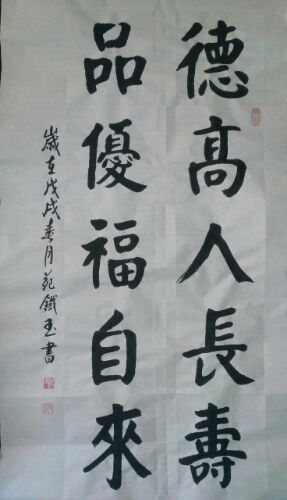 德高人長壽
品優福自來
歲在戊戌春月范鐵玉書